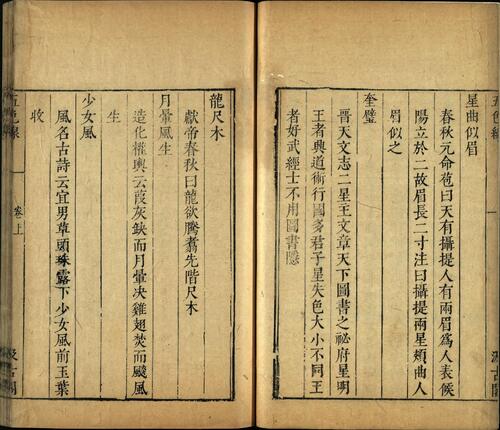 星曲似眉
春秋元命苞曰天有攝提人有兩眉爲人表候
陽立於二故眉長二寸注曰攝提兩星頬曲人
眉似之
奎璧
晋天文志二星王文章天下圖書之祕府星明
王者興道術行國多君子星失色大小不同王
者好武經士不用圖書隱
龍尺木
獻帝春秋曰龍欲騰翥先階尺木
月暈風生
造化權輿云葭灰缺而月暈决雞翅焚而飈風
生
少女風
風名古詩云宜男草頭珠露下少女風前玉葉
收
卷上